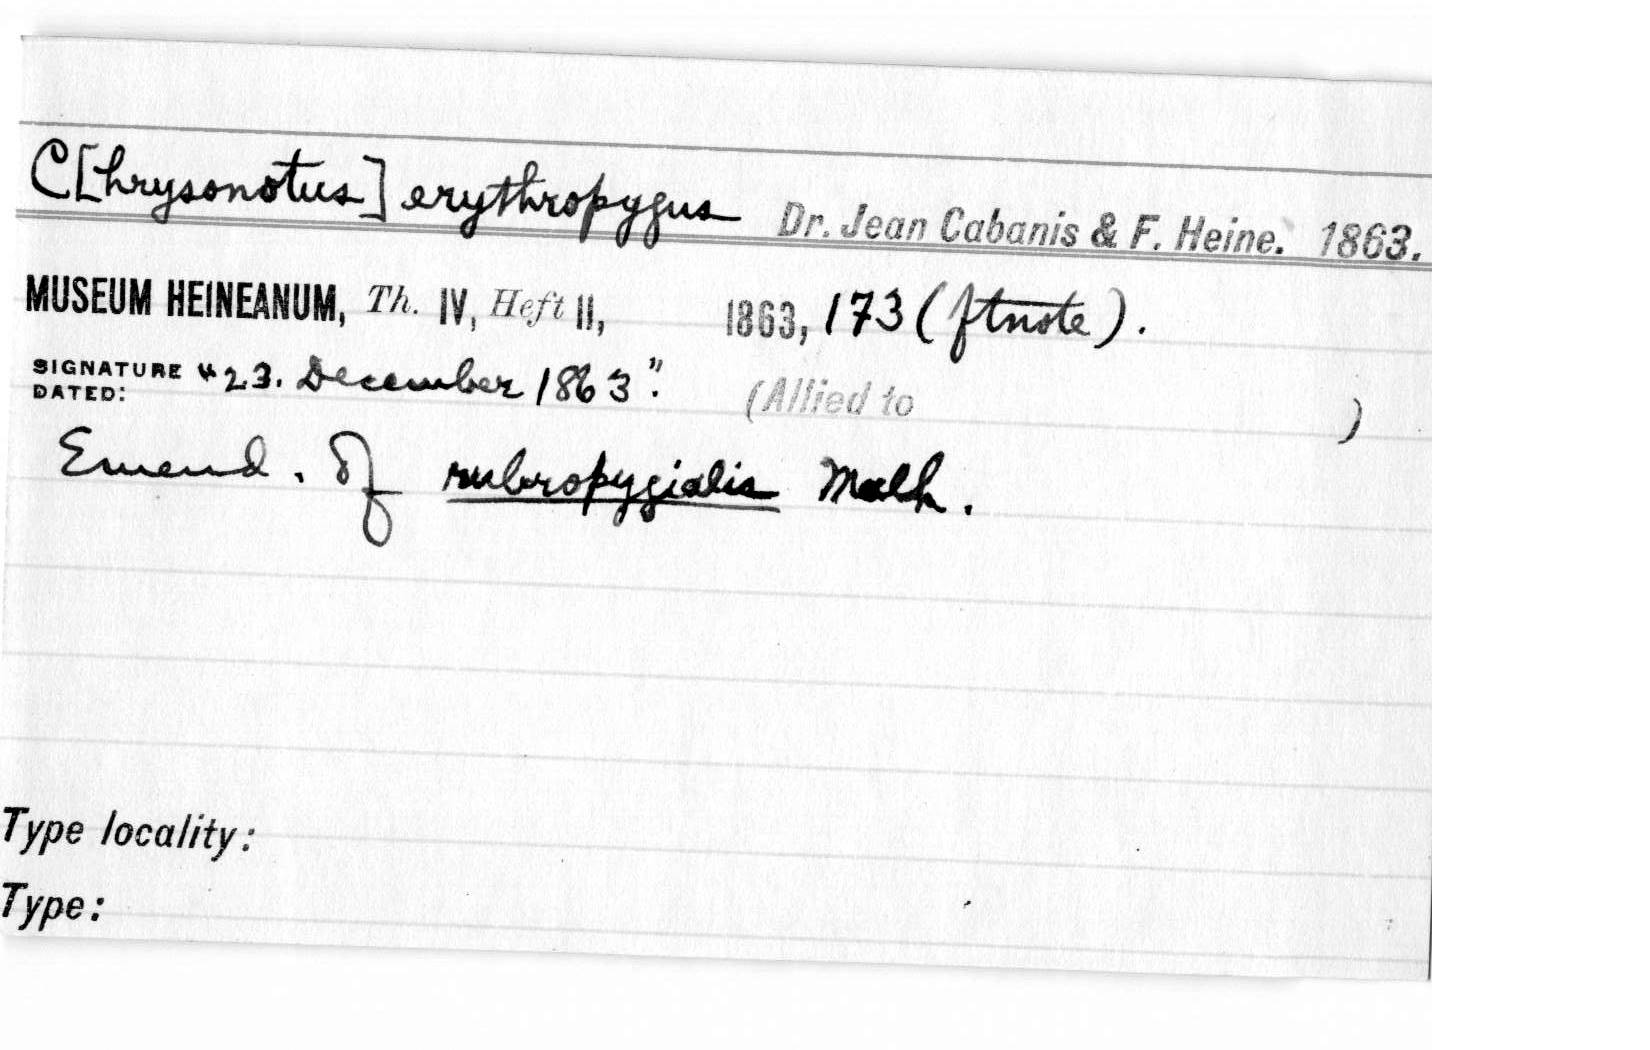 C[hrysonotus] erythropygus Dr. Jean Cabanis & F. Heine. 1863.
MUSEUM HEINEANUM, Th. IV, Heft II, 1863, 173 (ftnote).
SIGNATURE DATED: "23. December 1863". (Allied to )
Emend. of rubropygialis Malh.
Type locality:
Type: